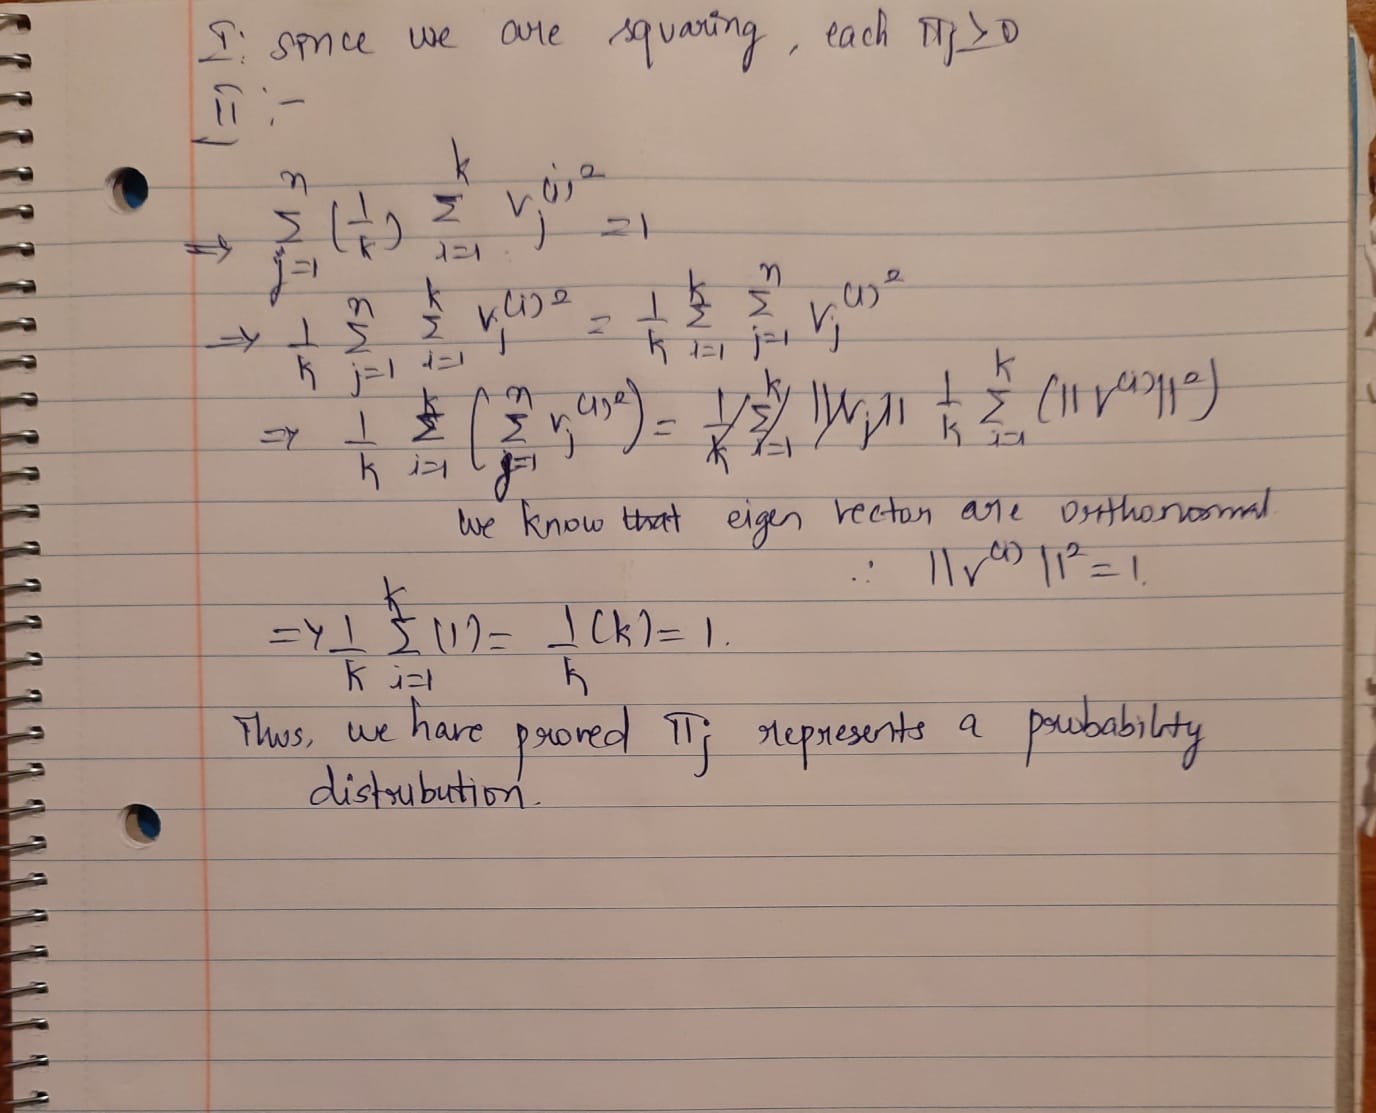 I: since we are squaring, each πj ≥ 0
II :-
⇒ Σ_{j=1}^{n} (1/k) Σ_{i=1}^{k} v_j^{(i)2} = 1
⇒ 1/k Σ_{j=1}^{n} Σ_{i=1}^{k} v_j^{(i)2} = 1/k Σ_{i=1}^{k} Σ_{j=1}^{n} v_j^{(i)2}
⇒ 1/k Σ_{i=1}^{k} (Σ_{j=1}^{n} v_j^{(i)2}) = 1/k Σ_{i=1}^{k} (||v^{(i)}||²)
we know that eigen vector are orthonormal
∴ ||v^{(i)}||² = 1.
⇒ 1/k Σ_{i=1}^{k} (1) = 1/k (k) = 1.
Thus, we have proved πj represents a probability
distrubution.